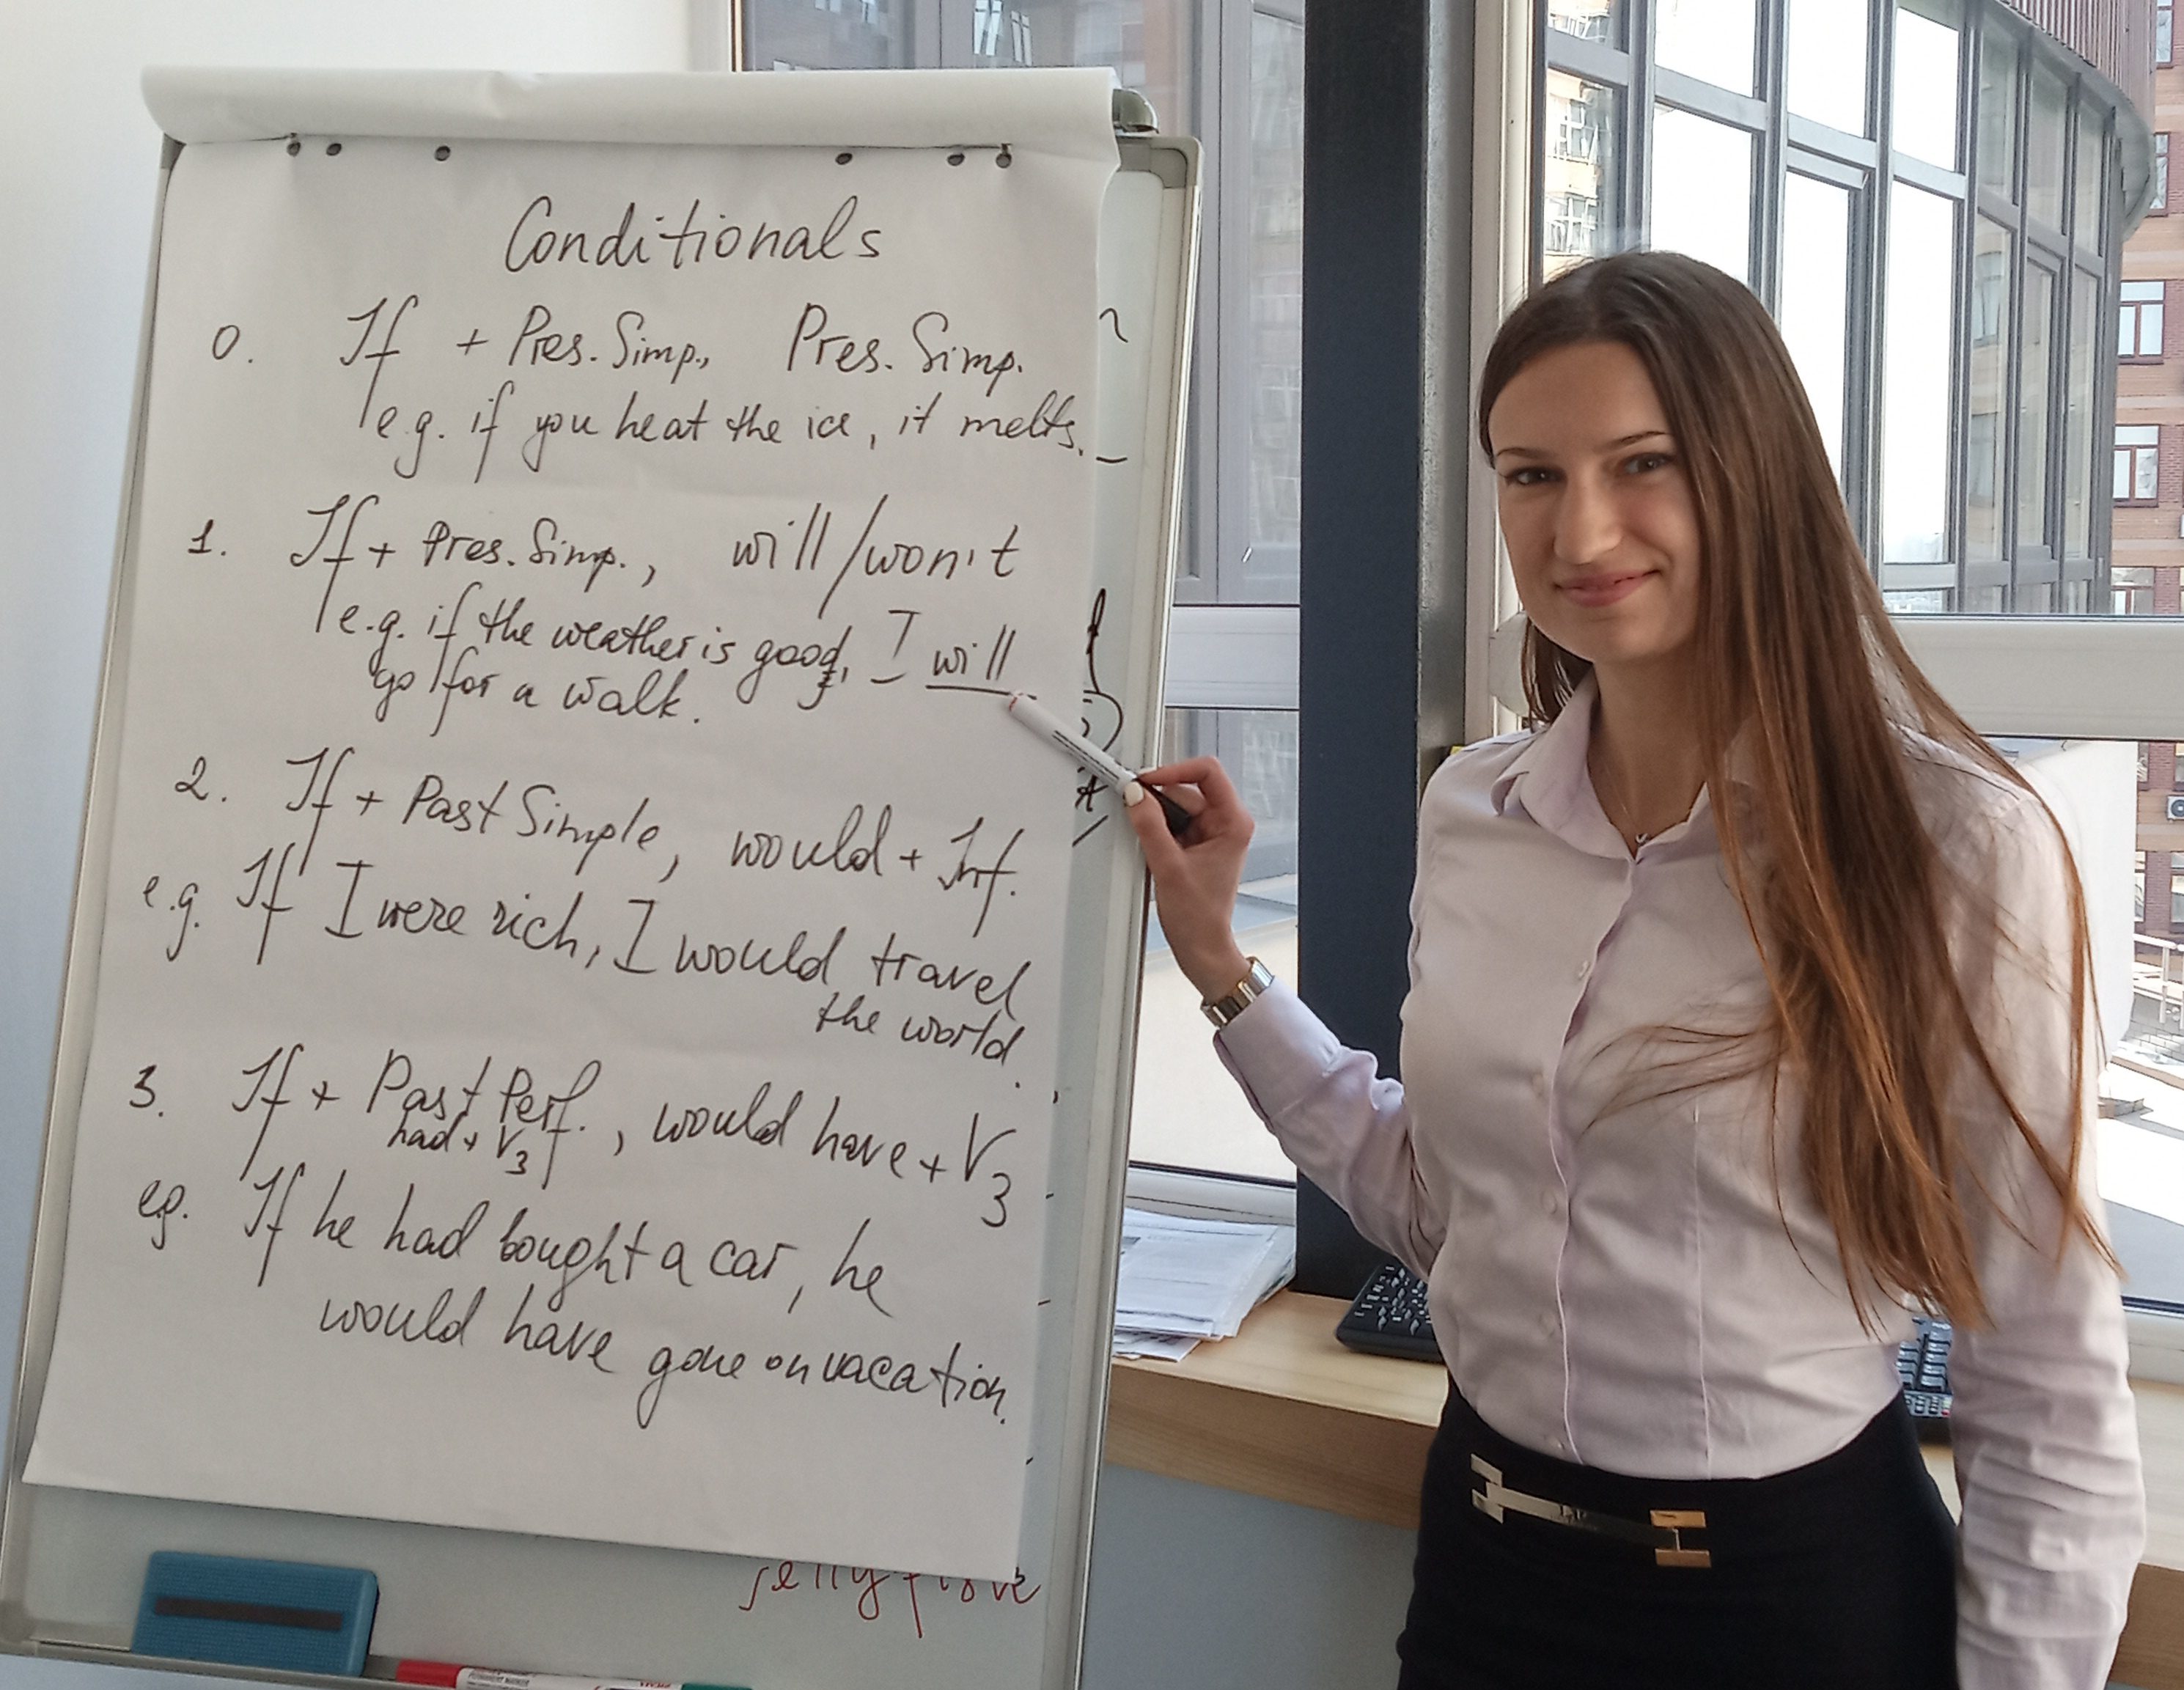 Conditionals
0. If + Pres. Simp., Pres. Simp.
e.g. if you heat the ice, it melts.
1. If + Pres. Simp., will/won't
e.g. if the weather is good, I will
go for a walk.
2. If + Past Simple, would + Inf.
e.g. If I were rich, I would travel
the world.
3. If + Past Perf., would have + V3
had + V3
e.g. If he had bought a car, he
would have gone on vacation.